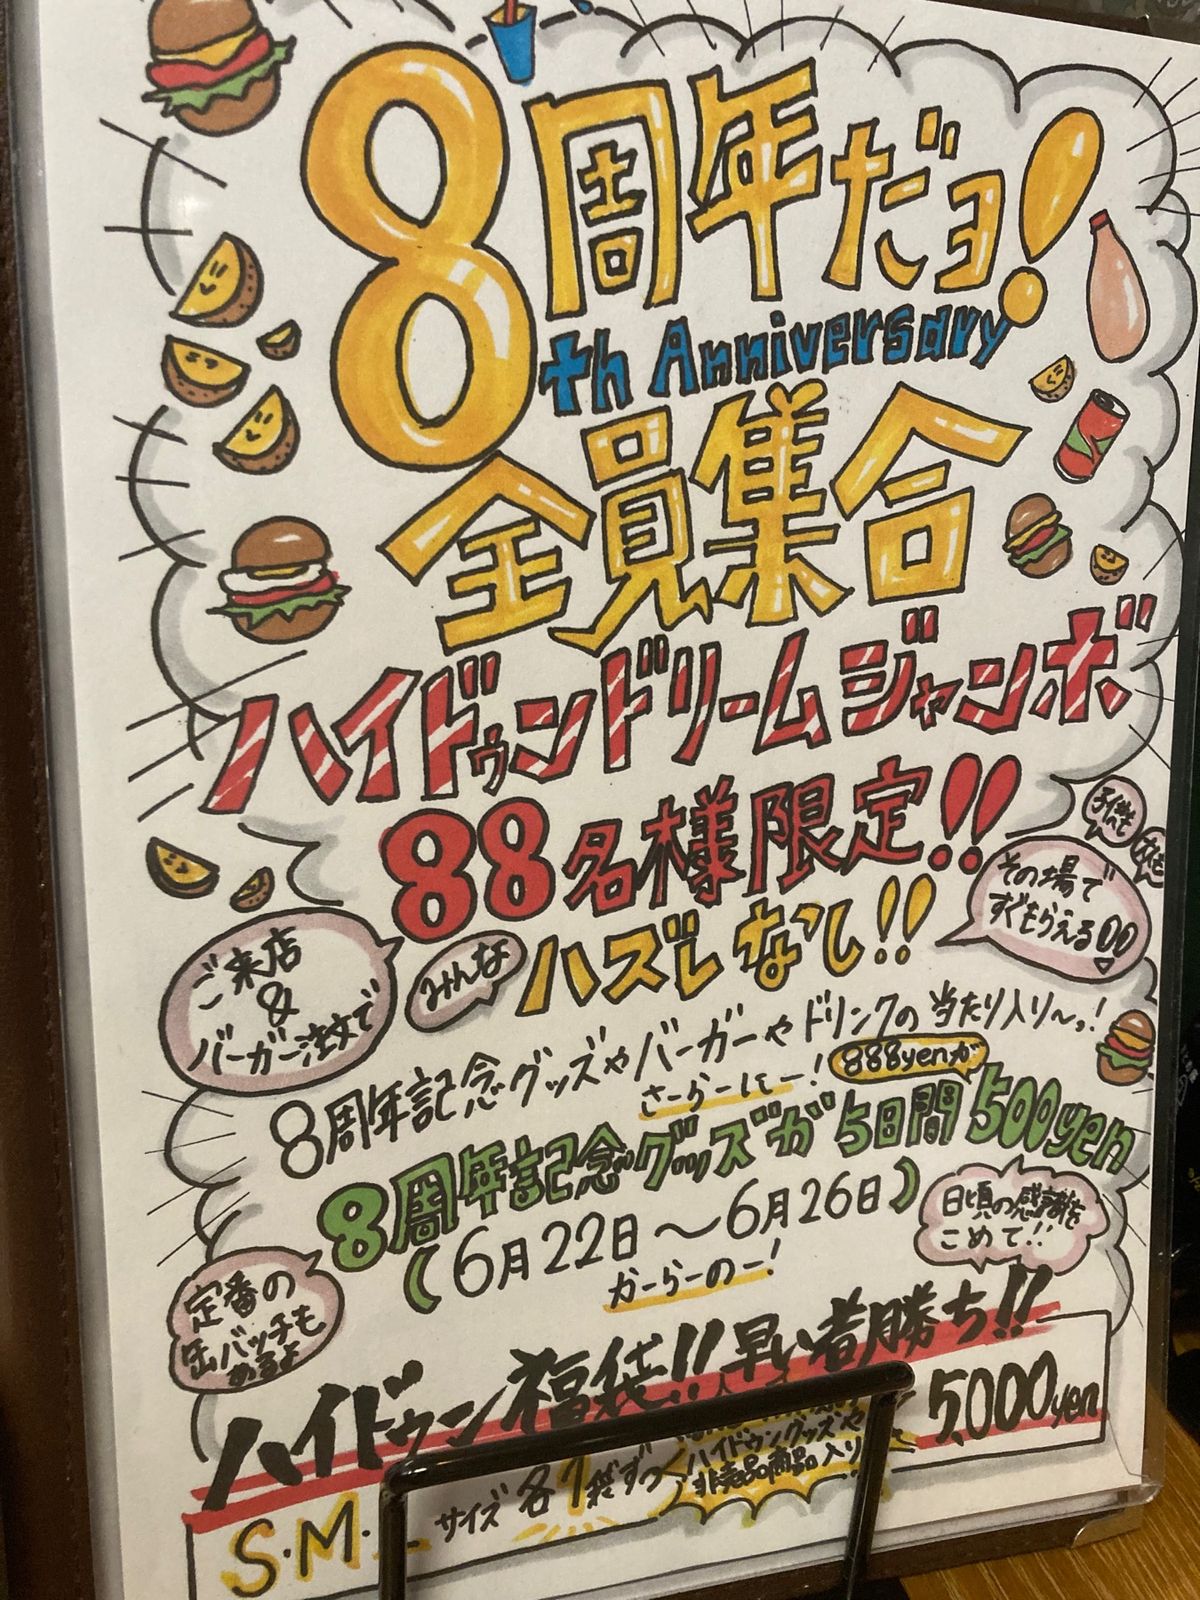 8周年だョ!
th Anniversary
全員集合
ハイドゥンドリームジャンボ
88名様限定!!
その場で
すぐもらえる
ご来店
&
バーガー注文で
みんな
ハズレなし!!
8周年記念グッズやバーガーやドリンクの当たり入り〜っ!
さーらーにー!
888yenが
8周年記念グッズが5日間500yen
(6月22日〜6月26日)
日頃の感謝を
こめて!!
かーらーのー!
定番の
缶バッチも
あるよ
ハイドゥン福袋!!早い者勝ち!!
5,000yen
S.M.
サイズ各1袋ずつ
ハイドゥングッズや
非売品商品入り